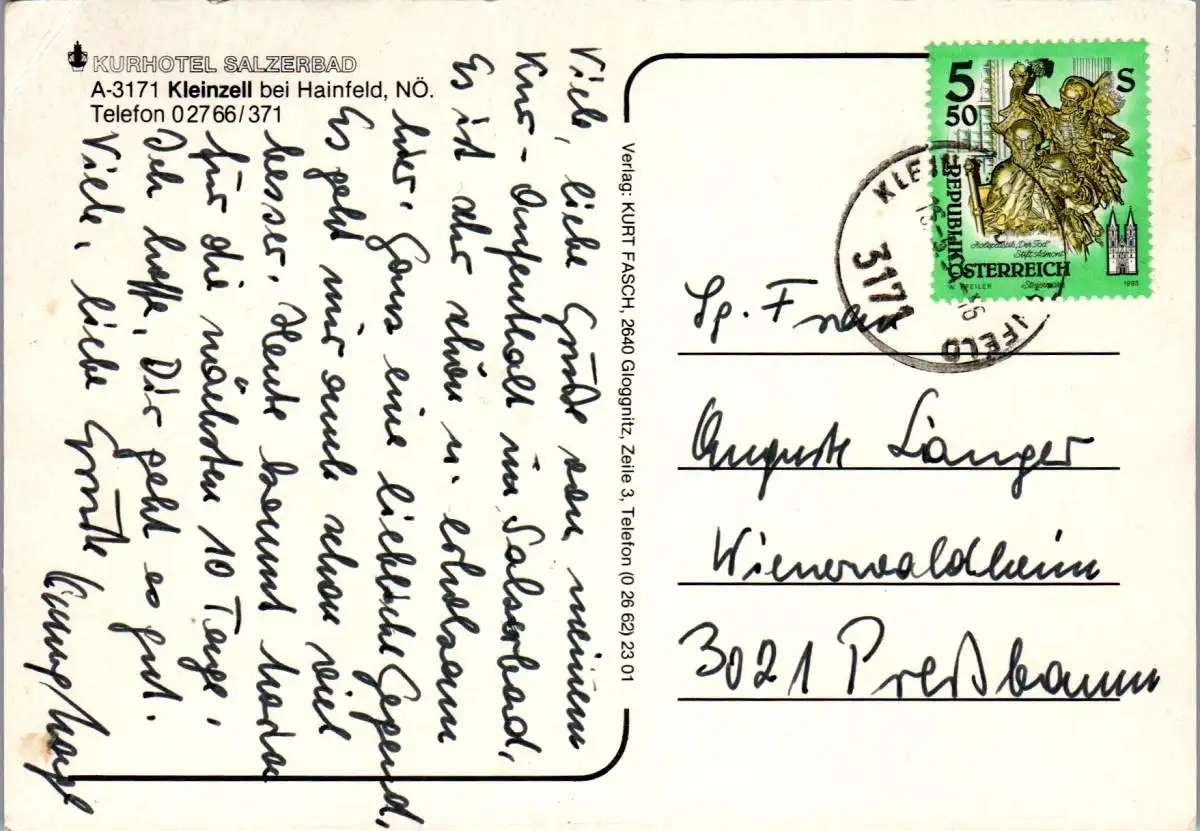 KURHOTEL SALZERBAD
A-3171 Kleinzell bei Hainfeld, NÖ.
Telefon 02766/371
Viele, liebe Grüße von meinem
Kur-Aufenthalt in Salzerbad,
Es ist sehr schön u. erholsam
hier. Ganz eine liebliche Gegend,
Es geht mir auch schon viel
besser. Heute kommt
für die nächsten 10 Tage.
Ich hoffe, Dir geht es gut.
Viele, liebe Grüße
Verlag: KURT FASCH, 2640 Gloggnitz, Zeile 3, Telefon (0 26 62) 23 01
5 S
50
REPUBLIK
ÖSTERREICH
Holzplastik „Der Tod"
Stift Admont
Steiermark
W. PFEILER
1993
3171
Sp. Frau
Auguste Langer
Wienerwaldheim
3021 Preßbaum